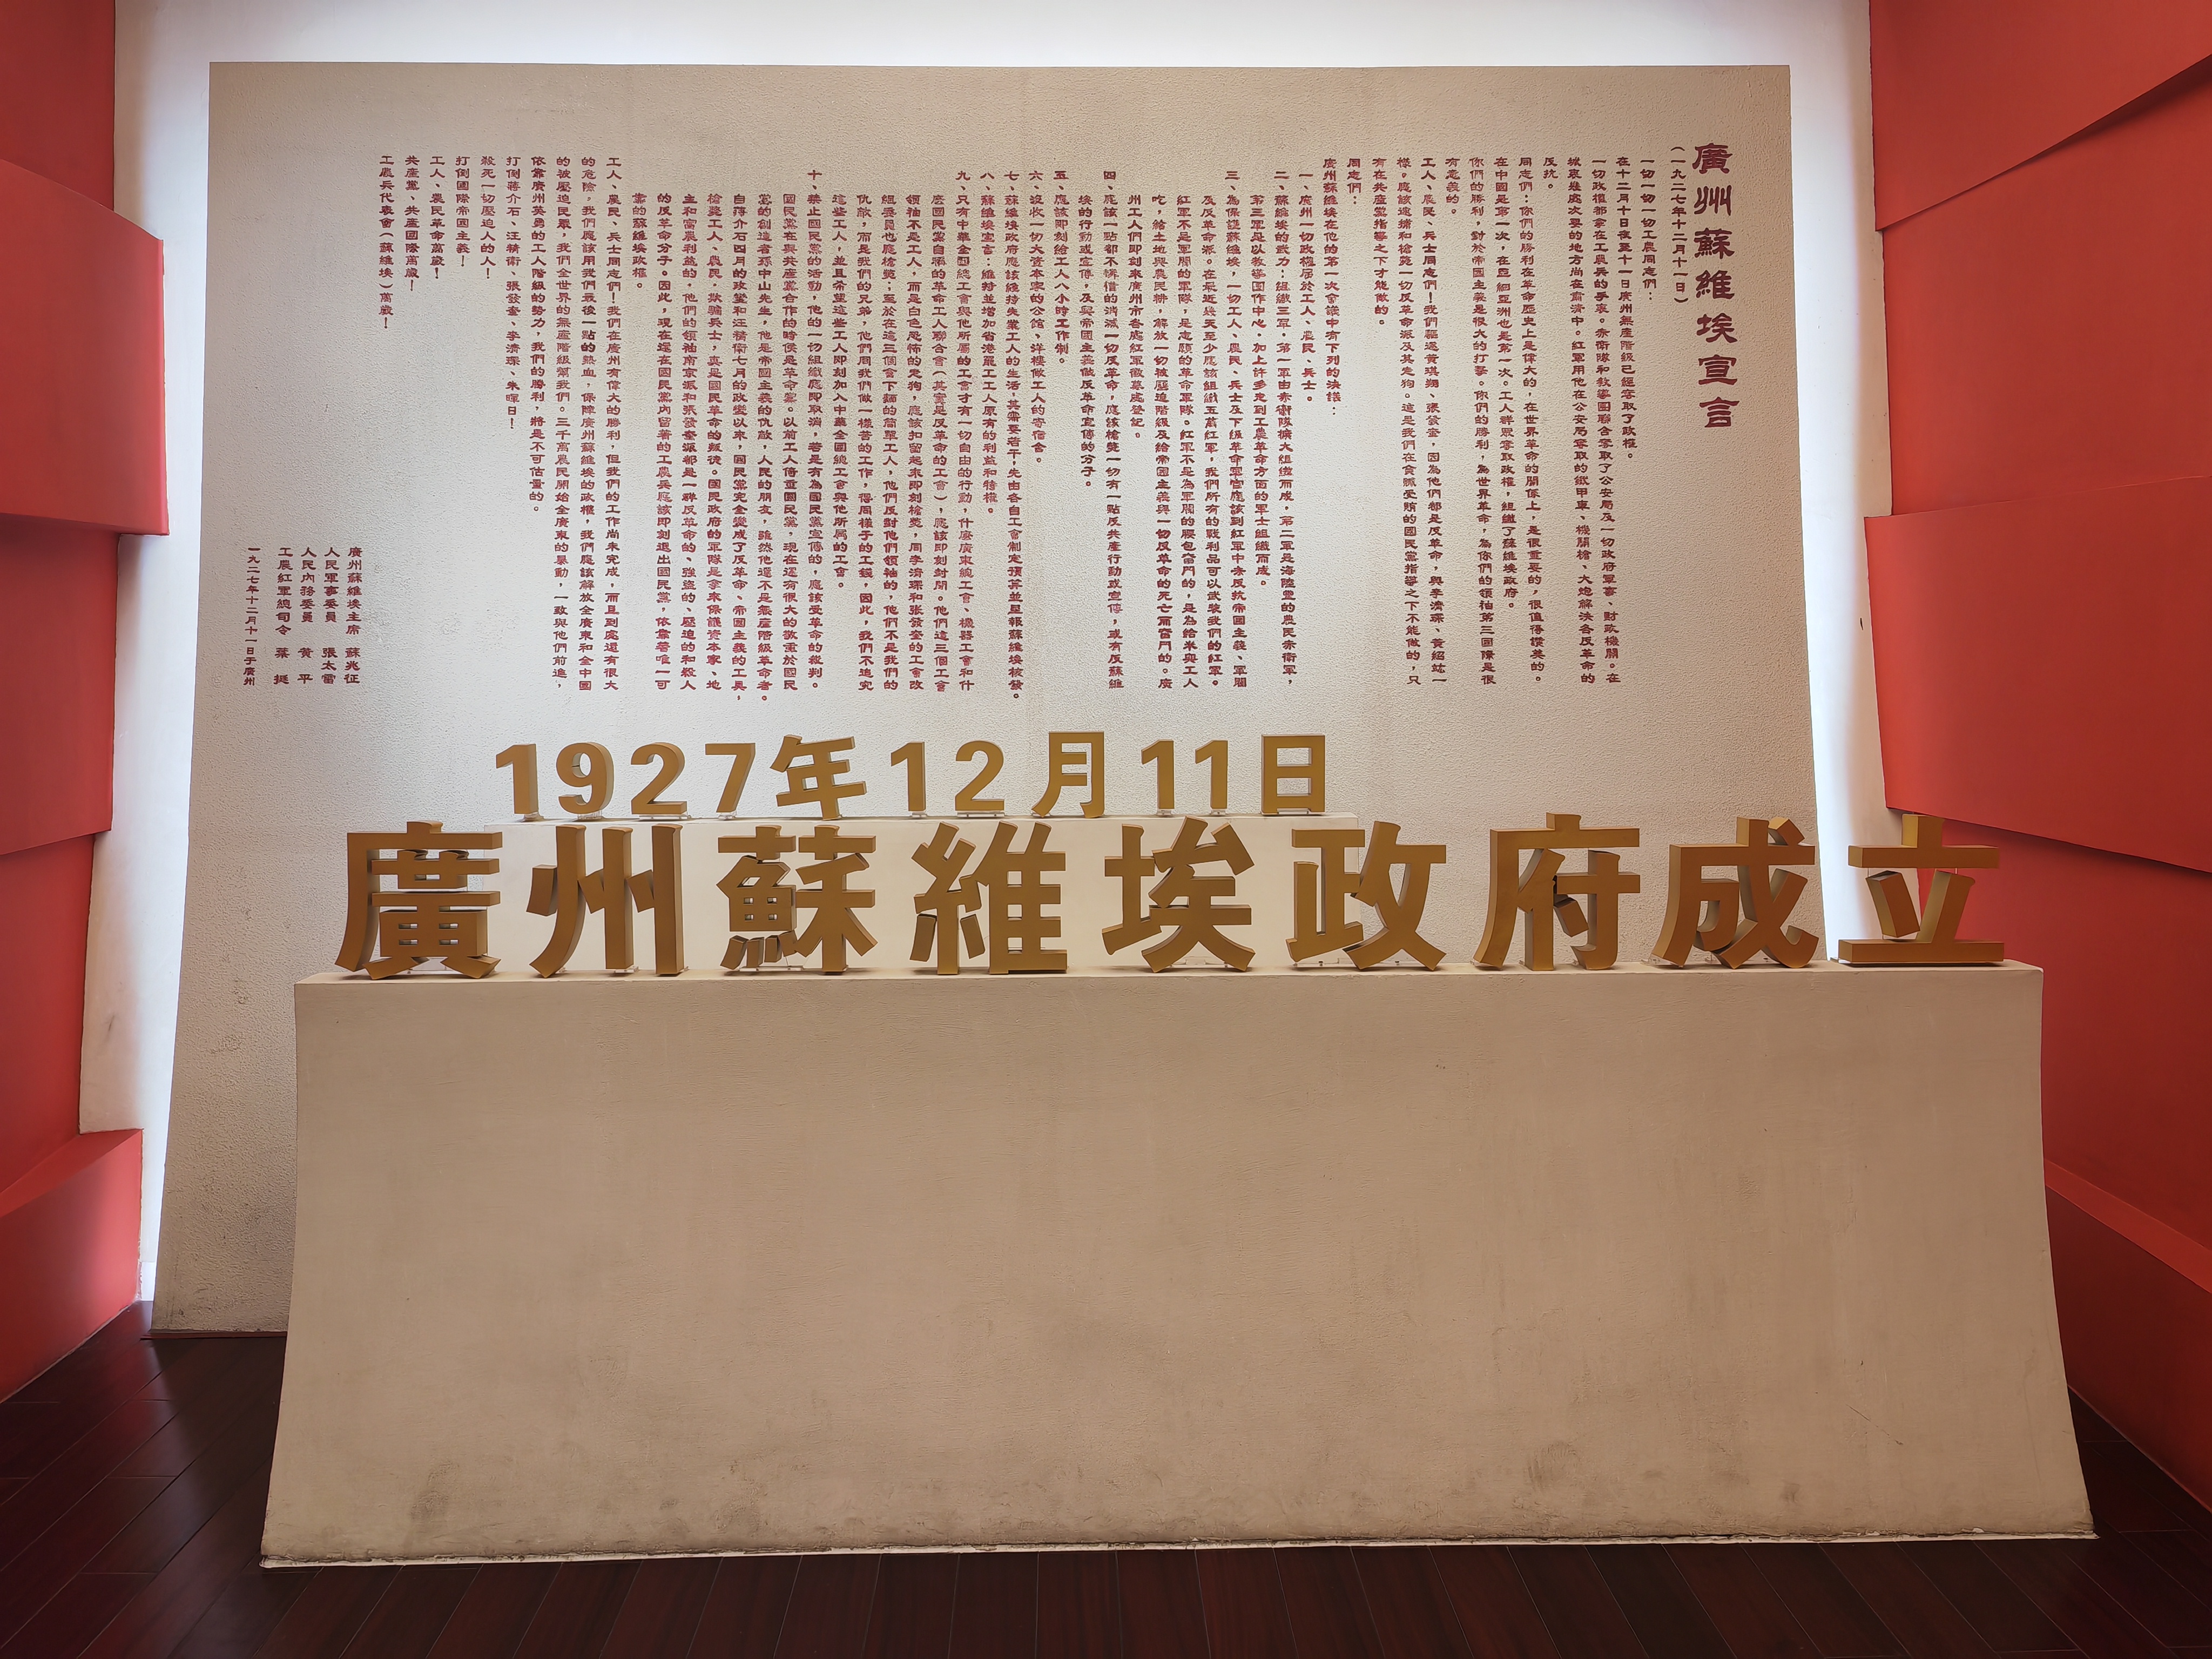 廣州蘇維埃宣言
(一九二七年十二月十一日)
一切一切一切工農同志們：
在十二月十日夜至十一日廣州無產階級已經奪取了政權。
一切政權都拿在工農兵的手裏。赤衛隊和教導團聯合奪取了公安局及一切政府軍事、財政機關。在
城裏幾處次要的地方尚在肅清中。紅軍用他在公安局奪取的鐵甲車、機關槍、大炮解決各反革命的
反抗。
同志們：你們的勝利在革命歷史上是偉大的，在世界革命的關係上，是很重要的，很值得讚美的。
在中國是第一次，在亞細亞洲也是第一次。工人群眾奪取政權，組織了蘇維埃政府。
你們的勝利，對於帝國主義是很大的打擊。你們的勝利，為世界革命，為你們的領袖第三國際是很
有意義的。
工人、農民、兵士同志們！我們驅逐黃琪翔、張發奎，因為他們都是反革命，與李濟琛、黃紹竑一
樣。應該逮捕和槍斃一切反革命派及其走狗。這是我們在貪贓受賄的國民黨指導之下不能做的，只
有在共產黨指導之下才能做的。
同志們：
廣州蘇維埃在他的第一次會議中有下列的決議：
一、廣州一切政權屬於工人、農民、兵士。
二、蘇維埃的武力：組織三軍。第一軍由赤衛隊擴大組織而成。第二軍是海陸豐的農民赤衛軍，
第三軍是以教導團作中心，加上許多走到工農革命方面的軍士組織而成。
三、為保護蘇維埃，一切工人、農民、兵士及下級革命軍官應該到紅軍中來反抗帝國主義、軍閥
及反革命派。在最近幾天至少應該組織五萬紅軍，我們所有的戰利品可以武裝我們的紅軍。
紅軍不是軍閥的軍隊，是志願的革命軍隊。紅軍不是為軍閥的腰包奮鬥的，是為給米與工人
吃，給土地與農民耕，解放一切被壓迫階級及給帝國主義與一切反革命的死亡而奮鬥的。廣
州工人們即刻來廣州市各處紅軍徵募處登記。
四、應該一點都不憐惜的消滅一切反革命，應該槍斃一切有一點反共產行動或宣傳，或有反蘇維
埃的行動或宣傳，及與帝國主義做反革命宣傳的分子。
五、應該即刻給工人八小時工作制。
六、沒收一切大資本家的公館、洋樓做工人的寄宿舍。
七、蘇維埃政府應該維持失業工人的生活，其需要若干，先由各自工會制定預算並呈報蘇維埃核發。
八、蘇維埃宣言：維持並增加省港罷工工人原有的利益和特權。
九、只有中華全國總工會與他所屬的工會才有一切自由的行動，什麼廣東總工會、機器工會和什
麼國民黨自稱的革命工人聯合會(其實是反革命的工會)，應該即刻封閉。他們這三個工會
領袖不是工人，而是白色恐怖的走狗，應該扣留起來即刻槍斃，同李濟琛和張發奎的工會改
組委員也應槍斃；至於在這三個會下面的簡單工人，他們反對他們領袖的，他們不是我們的
仇敵，而是我們的兄弟，他們同我們做一樣苦的工作，得同樣子的工錢，因此，我們不追究
這些工人，並且希望這些工人即刻加入中華全國總工會與他所屬的工會。
十、禁止國民黨的活動，他的一切組織應即取消，若是有為國民黨宣傳的，應該受革命的裁判。
國民黨在與共產黨合作的時侯是革命黨。以前工人倚重國民黨，現在還有很大的敬重於國民
黨的創造者孫中山先生，他是帝國主義的仇敵，人民的朋友，雖然他還不是無產階級革命者。
自蔣介石四月的政變和汪精衛七月的政變以來，國民黨完全變成了反革命、帝國主義的工具，
槍斃工人、農民，欺騙兵士，真是國民革命的叛徒。國民政府的軍隊是拿來保護資本家、地
主和富農利益的，他們的領袖南京派和張發奎派都是一群反革命的、強盜的、壓迫的和殺人
的反革命分子。因此，現在還在國民黨內留著的工農兵應該即刻退出國民黨，依靠著唯一可
靠的蘇維埃政權。
工人、農民、兵士同志們！我們在廣州有偉大的勝利，但我們的工作尚未完成，而且到處還有很大
的危險，我們應該用我們最後一點的熱血，保障廣州蘇維埃的政權，我們應該解放全廣東和全中國
的被壓迫民眾，我們全世界的無產階級幫我們。三千萬農民開始全廣東的暴動，一致與他們前進，
依靠廣州英勇的工人階級的勢力，我們的勝利，將是不可估量的。
打倒蔣介石、汪精衛、張發奎、李濟琛、朱暉日！
殺死一切壓迫人的人！
打倒國際帝國主義！
工人、農民革命萬歲！
共產黨、共產國際萬歲！
工農兵代表會(蘇維埃)萬歲！
廣州蘇維埃主席 蘇兆征
人民軍事委員 張太雷
人民內務委員 黃平
工農紅軍總司令 葉挺
一九二七年十二月十一日于廣州
1927年12月11日
廣州蘇維埃政府成立